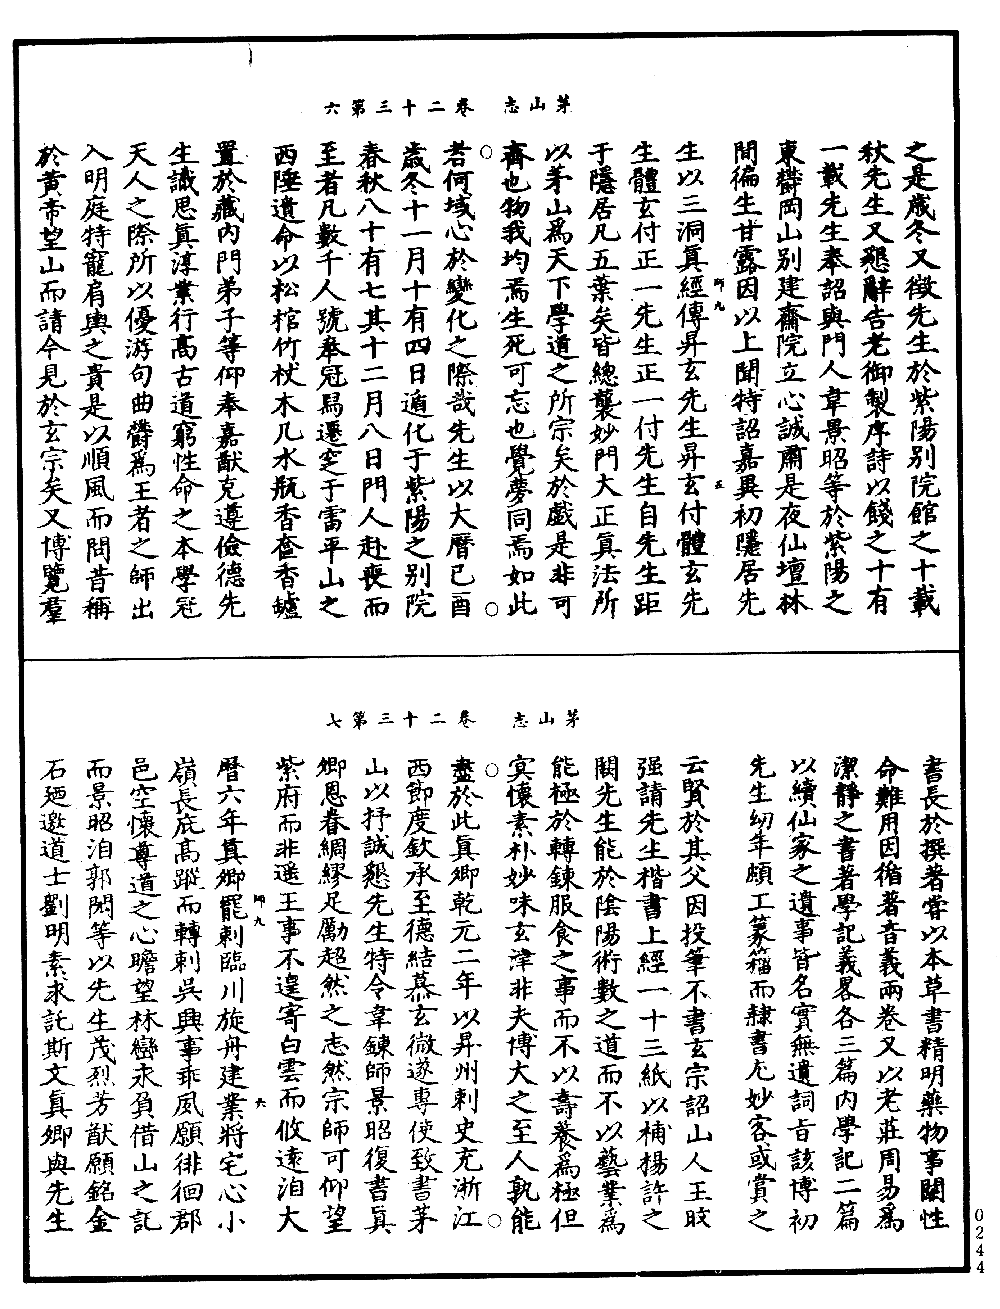 茅山志　卷二十三第六
之是歲冬又徵先生於紫陽別院館之十載
秋先生又懇辭告老御製序詩以餞之十有
一載先生奉詔與門人韋景昭等於紫陽之
東鬱岡山別建齋院立心誠肅是夜仙壇林
間徧生甘露因以上聞特詔嘉異初隱居先
師九　五
生以三洞眞經傳昇玄先生昇玄付體玄先
生體玄付正一先生正一付先生自先生距
于隱居凡五葉矣皆總襲妙門大正眞法所
以茅山爲天下學道之所宗矣於戲是非可
齊也物我均焉生死可忘也覺夢同焉如此
○　○
若何域心於變化之際哉先生以大曆己酉
歲冬十一月十有四日遁化于紫陽之別院
春秋八十有七其十二月八日門人赴喪而
至者凡數千人號奉冠舄遷窆于雷平山之
西陲遺命以松棺竹杖木几水瓶香奩香罏
置於藏內門弟子等仰奉嘉猷克遵儉德先
生識思眞淳業行高古道窮性命之本學冠
天人之際所以優游句曲鬱爲王者之師出
入明庭特寵肩輿之貴是以順風而問昔稱
於黃帝望山而請今見於玄宗矣又博覽羣
茅山志　卷二十三第七
書長於撰著嘗以本草書精明藥物事關性
命難用因循著音義兩卷又以老莊周易爲
潔靜之書著學記義畧各三篇內學記二篇
以續仙家之遺事皆名實無遺詞旨該博初
先生幼年頗工篆籀而隸書尤妙客或賞之
云賢於其父因投筆不書玄宗詔山人王旼
强請先生楷書上經一十三紙以補楊許之
闕先生能於陰陽術數之道而不以藝業爲
能極於轉鍊服食之事而不以壽養爲極但
冥懷素朴妙味玄津非夫博大之至人孰能
○　○
盡於此眞卿乾元二年以昇州刺史充浙江
西節度欽承至德結慕玄微遂專使致書茅
山以抒誠懇先生特令韋鍊師景昭復書眞
卿恩眷綢繆足勵超然之志然宗師可仰望
紫府而非遥王事不遑寄白雲而攸遠洎大
師九　六
曆六年眞卿罷刺臨川旋舟建業將宅心小
嶺長庇高蹤而轉刺吳興事乖夙願徘徊郡
邑空懷尊道之心瞻望林巒永負借山之記
而景昭洎郭閎等以先生茂烈芳猷願銘金
石廼邀道士劉明素求託斯文眞卿與先生
0244